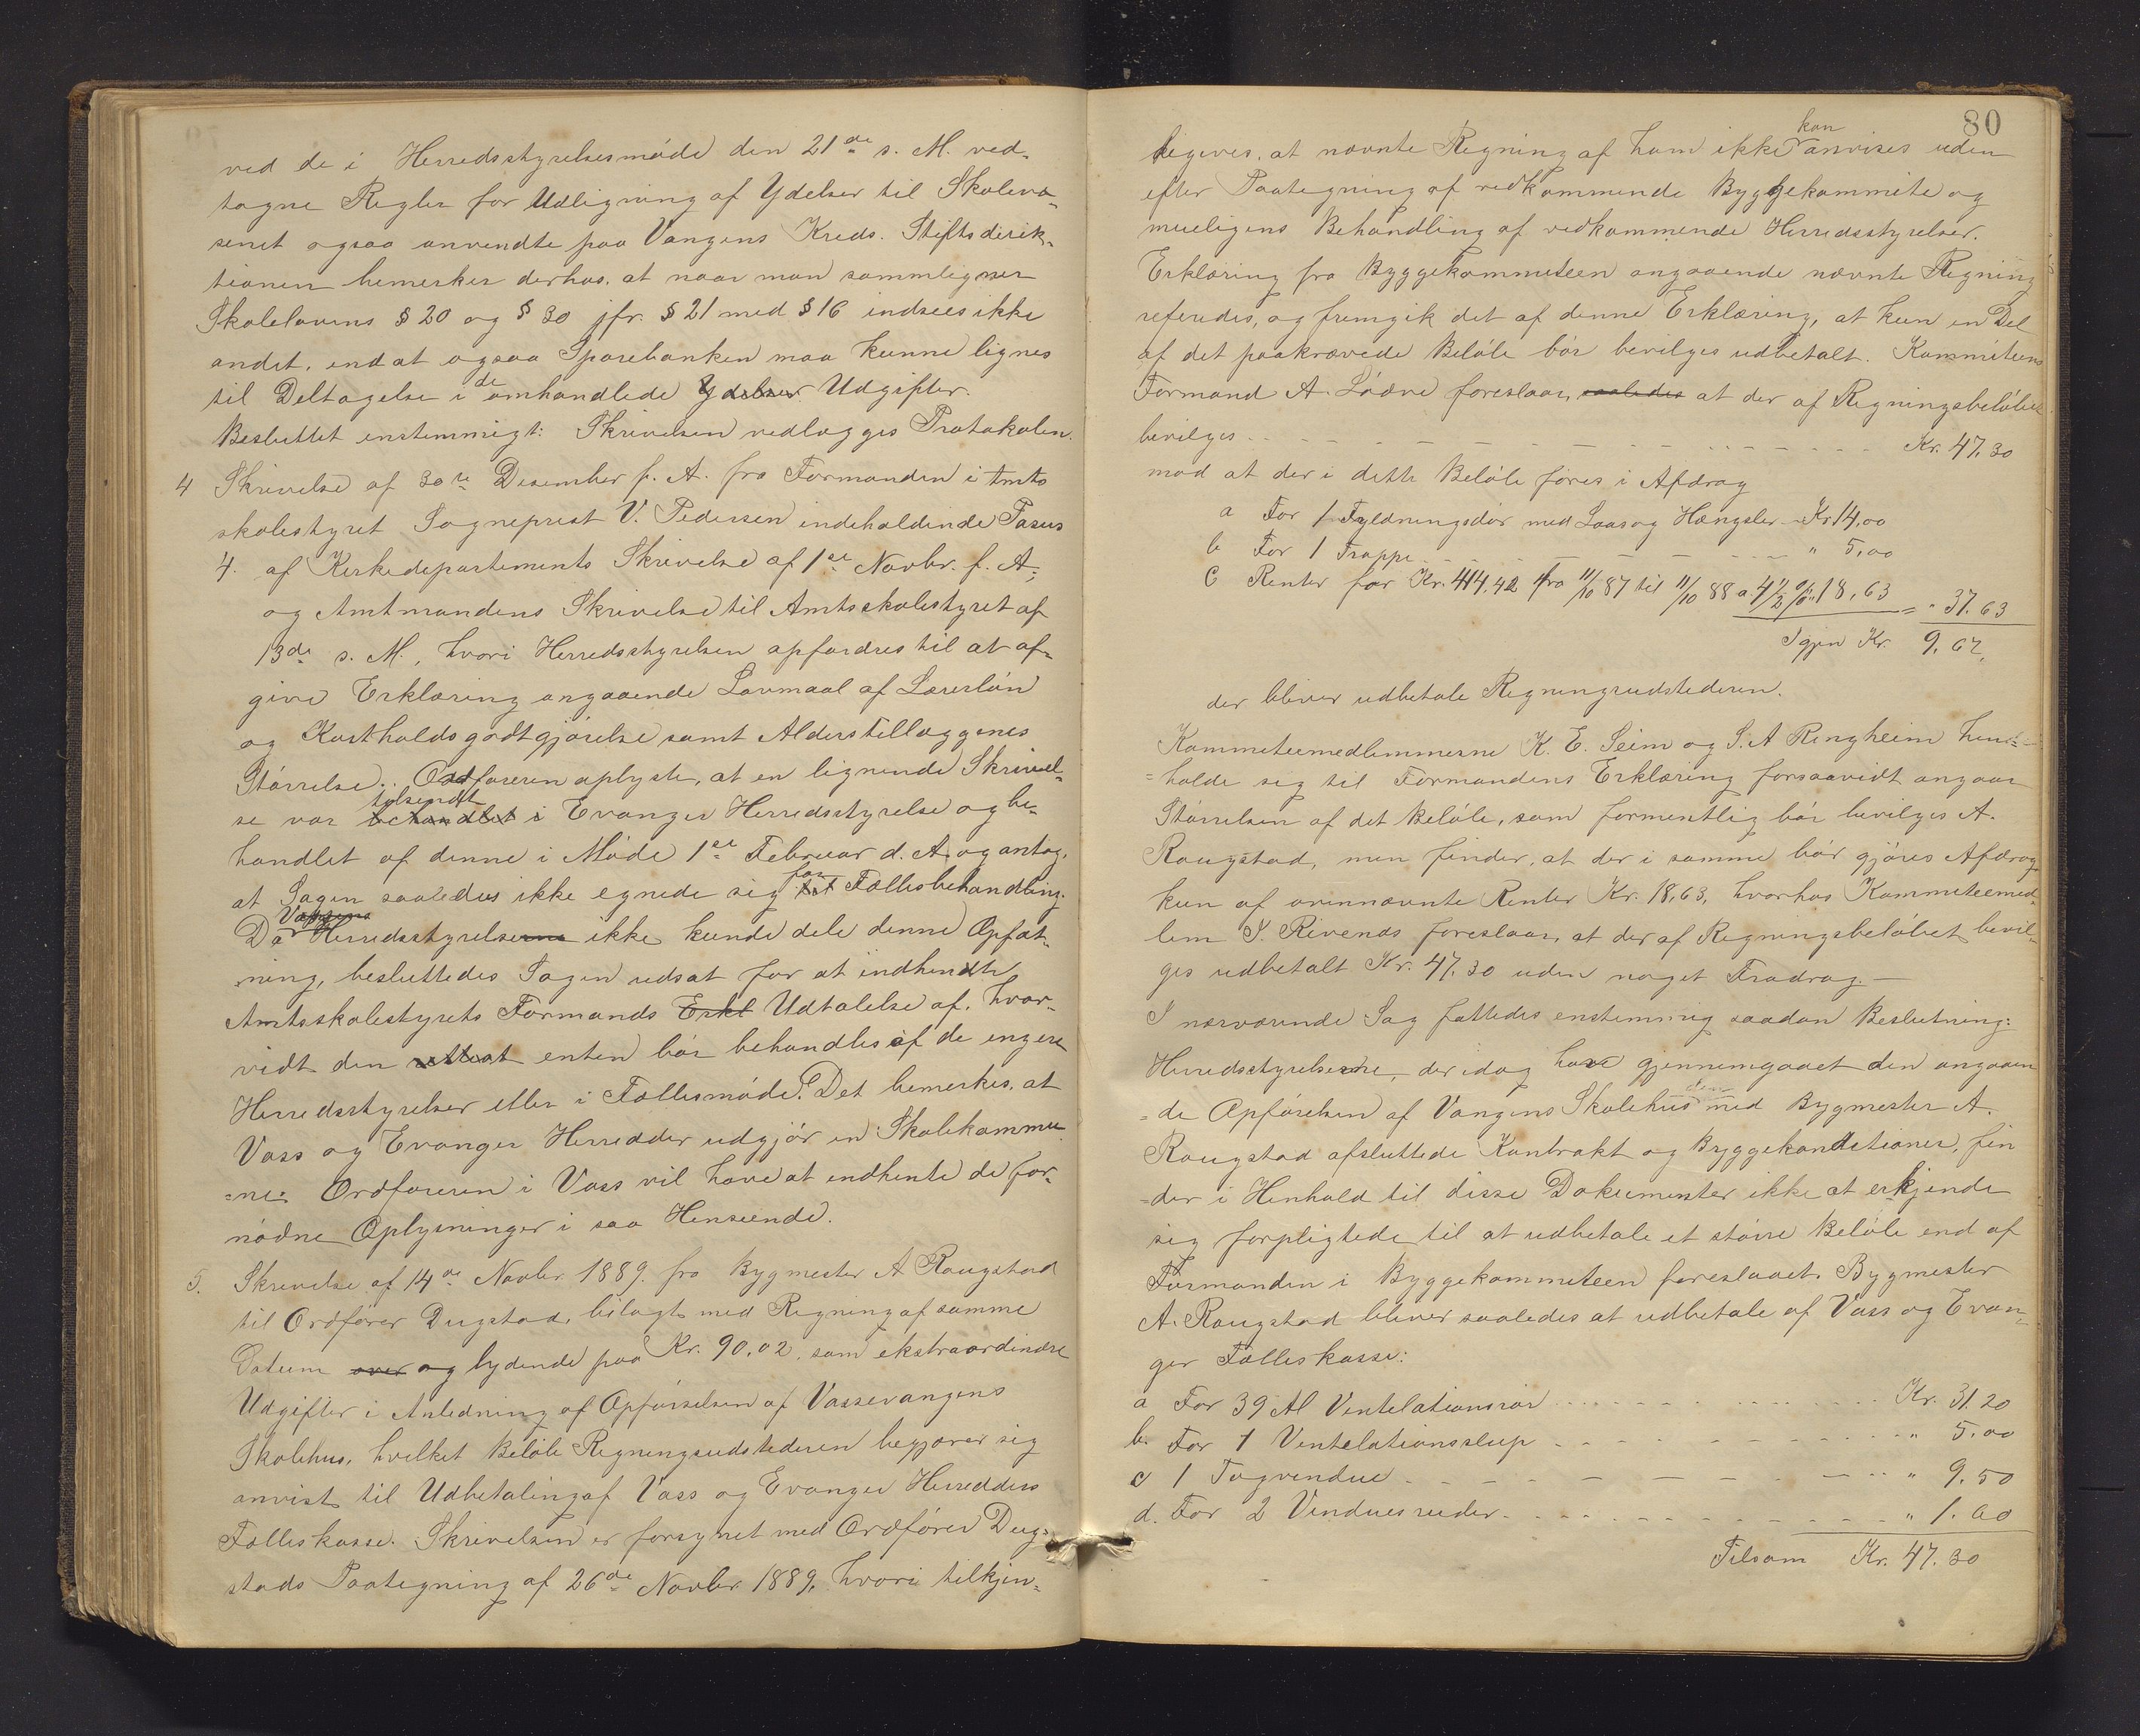 ved de i Herredsstyrelsesmøde den 21de s. M. ved-
tagne Regler for Udligning af Ydelser til Skoleve-
senet ogsaa anvendte paa Vangens Kreds. Stiftsdirik-
tionen bemerker derhos, at naar man sammenligner
Skolelovens § 20 og § 30 jfr. § 21 med § 16 indsees ikke
andet, end at ogsaa Sparebanken maa kunne lignes
til Deltagelse i de omhandlede Ydelser Udgifter.
Besluttet enstemmigt: Skrivelsen vedlægges Protokolen.
4 Skrivelse af 30te Desember f. A. fra Formanden i Amts
skolestyret Sogneprest V. Pedersen indeholdende Pasus
4. af Kirkedepartements Skrivelse af 1ste Novbr. f. A;
og Amtmandens Skrivelse til Amtsskolestyret af
13de s. M., hvori Herredsstyrelsen opfordres til at af-
give Erklæring angaaende Lavmaal af Læreløn
og Kostholdsgodtgjørelse samt Alderstillæggenes
Størrelse. Ordføreren oplyste, at en lignende Skrivel-
tilsendt
se var behandlet i Evanger Herredsstyrelse og be-
handlet af denne i Møde 1ste Februar d. A. og antog,
for
at Sagen saaledes ikke egnede sig til Fællesbehandling.
Vangens
Da Herredsstyrelserne ikke kunde dele denne Opfat-
ning, besluttedes Sagen udsat for at indhendte
Amtsskolestyrets Formands Erkl Udtalelse af, hvor-
vidt den enten bør behandles af de engere
Herredsstyrelser eller i Fællesmøde. Det bemerkes, at
Voss og Evanger Herredder udgjør en Skolekommu-
=ne. Ordføreren i Voss vil have at endhente de for-
nødne Oplysninger i saa Henseende.
5. Skrivelse af 14de Novbr. 1889 fra Bygmester A Rougstad
til Ordfører Dugstad, bilagt med Regning af samme
Datum over og lydende paa Kr. 90,02, som ekstraordinære
Udgifter i Anledning af Opførselsen af Vossevangens
Skolehus, hvilket Beløb Regningsudstederen begjærer sig
anvist til Udbetaling af Voss og Evanger Herredders
Fælleskasse. Skrivelsen er forsynet med Ordfører Dug-
stads Paategning af 26de Novbr. 1889, hvori tilkjen-
80
kan
degives, at nævnte Regning af ham ikke anvises uden
efter Paategning af vedkommende Byggekommite og
mueligens Behandling af vedkommende Herredsstyrelser.
Erklæring fra Byggekommiteen angaaende nævnte Regning
referedes, og fremgik det af denne Erklæring, at kun en Del
af det paakrævede Beløb bør bevilges udbetalt. Kommiteens
Formand A. Lødve foreslaar, saaledes at der af Regningsbeløbet
bevilges Kr. 47,30
mod at der i dette Beløb føres i Afdrag
a For 1 Fyldningsdør med Laas og Hængsler Kr 14,00
b For 1 Trappe " 5,00
c Renter for Kr. 414,42 fra 11/10 87 til 11/10 88 a 4 1/2 % " 18,63 = " 37,63
Igjen Kr. 9,67,
der bliver udbetale Regningsudstederen.
Kommiteemedlemmerne K. E. Seim og S. A Ringheim hen-
=holde sig til Formandens Erklæring forsaavidt angaar
Størrelsen af det Beløb, som formentlig bør bevilges A.
Rougstad, men finder, at der i samme bør gjøres Afdrag
kun af ovennævnte Renter Kr. 18,63, hvorhos Kommiteemed-
lem S. Rivenæs foreslaar, at der af Regningsbeløbet bevil-
ges udbetalt Kr. 47,30 uden noget Fradrag. —
I nærværende Sag fattedes enstemmig saadan Beslutning:
Herredsstyrelserne, der idag have gjennemgaaet den angaaen
den
=de Opførelsen af Vangens Skolehus med Bygmester A.
Rougstad afsluttede Kontrakt og Byggekonditioner, fin
=der i Henhold til disse Dokumenter ikke at erkjende
sig forpligtede til at udbetale et større Beløb end af
Formanden i Byggekommiteen foreslaaet. Bygmester
A. Rougstad bliver saaledes at udbetale af Voss og Evan-
ger Fælleskasse:
a For 39 Al Ventelationsrør Kr. 31.20
b. For 1 Ventelationsslup " 5,00
c 1 Tagvendue " 9,50
d. For 2 Vinduesruder " 1.60
Tilsam Kr. 47.30